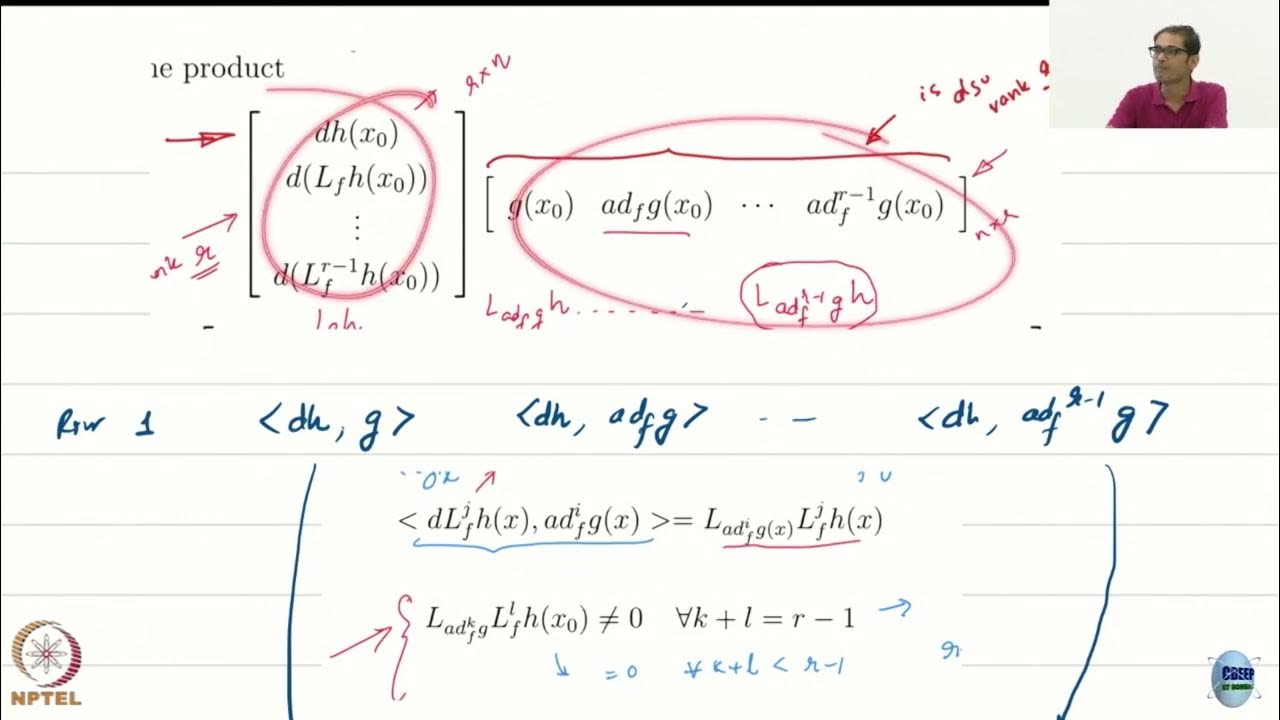 ıe product
r×n
is also
rank r
dh(x₀)
d(L_f h(x₀))
⋮
d(L_f^{r−1} h(x₀))
[ g(x₀) ad_f g(x₀) ⋯ ad_f^{r−1} g(x₀) ]
n×r
nk r
L_{ad_f g} h - - - - - - - L_{ad_f^{r-1} g} h
Row 1 <dh, g> <dh, ad_f g> - - <dh, ad_f^{r-1} g>
< dL_f^j h(x), ad_f^i g(x) >= L_{ad_f^i g(x)} L_f^j h(x)
L_{ad_f^k g} L_f^l h(x₀) ≠ 0 ∀k + l = r − 1
= 0 ∀ k+l < r-1
NPTEL
CDEEP
IIT BOMBAY